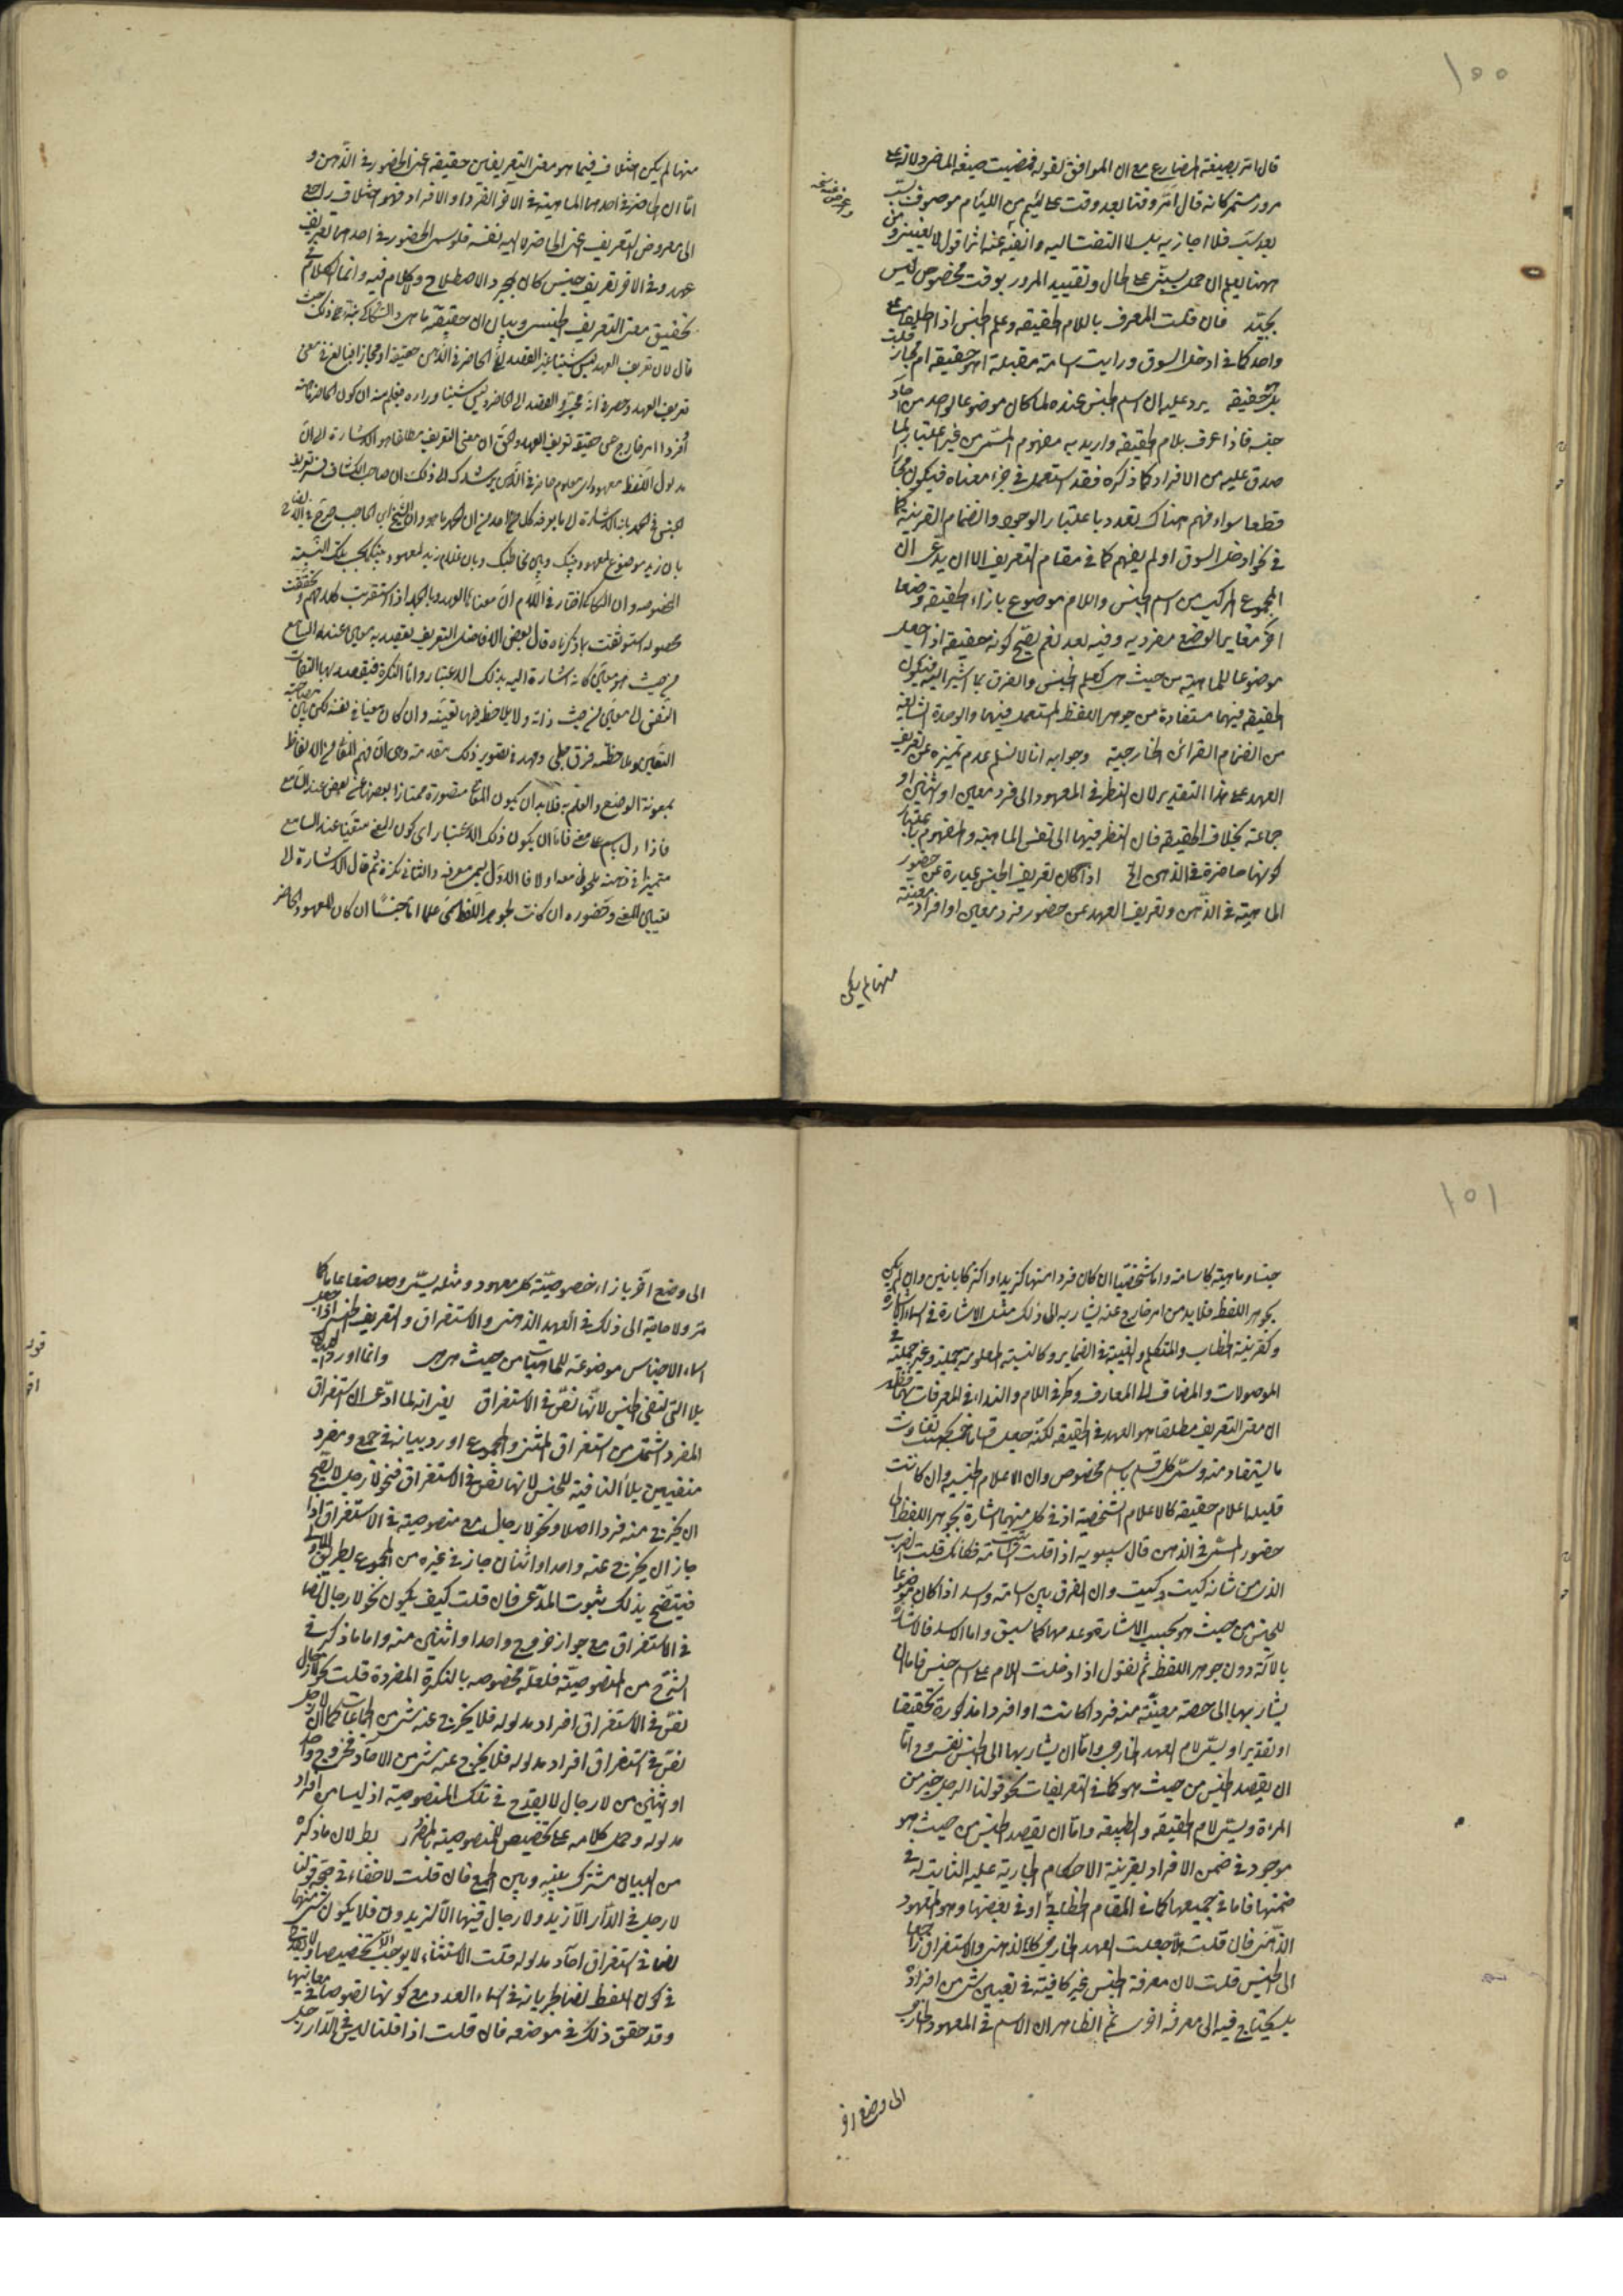 ١٥٥
قال امر بصيغة المضارع مع ان الموافق لقوله فمضيت صيغة الماضي دلالة على
مرور مستمر كانه قال امر وقتا بعد وقت على لئيم من اللئام موصوف بسب
بعد سب فلا اجازيه بل لا التفت اليه واتفيه عنه اثرا قول لا يعنيني ومن
ههنا يعلم ان حمل يسبني على الحال وتقييد المرور بوقت مخصوص ليس
بجيد فان قلت المعرف باللام الحقيقة وعلم الجنس اذا اطلقا على
واحد كما في ادخل السوق ورايت اسامة مقبلة اهو حقيقة ام مجاز قلت
بل حقيقة يرد عليه ان اسم الجنس عنده لما كان موضوعا لواحد من آحاد
جنسه فاذا عرف بلام الحقيقة واريد به مفهوم المسمى من غير اعتبار لما
صدق عليه من الافراد كما ذكره فقد استعمل في جزء معناه فيكون مجازا
قطعا سواء فهم هناك تعدد باعتبار الوجود وانضمام القرينة كما
في نحو ادخل السوق او لم يفهم كما في مقام التعريف الا ان يدعى ان
المجموع المركب من اسم الجنس واللام موضوع بازاء الحقيقة وضعا
آخر مغايرا لوضع مفرديه وفيه بعد نعم يصح كونه حقيقة اذا جعل
موضوعا للماهية من حيث هي كعلم الجنس والفرق بما اشير اليه فيكون
الحقيقة فيهما مستفادة من جوهر اللفظ المستعمل فيها والوحدة الشايعة
من انضمام القرائن الخارجية وجوابه انا لا نسلم عدم تميزه عن تعريف
العهد على هذا التقدير لان النظر في المعهود الى فرد معين او اثنين او
جماعة بخلاف الحقيقة فان النظر فيها الى نفس الماهية والمفهوم باعتبار
كونها حاضرة في الذهن الخ اذا كان تعريف الجنس عبارة عن حضور
الماهية في الذهن وتعريف العهد عن حضور فرد معين او افراد معينة
منها لم يكن
منها لم يكن اختلاف فيما هو معنى التعريفين حقيقة اعني الحضور في الذهن و
اما ان الحاضر في احدهما الماهية في الآخر الفرد او الافراد فهو اختلاف راجع
الى معروض التعريف اعني الحاضر لا اليه نفسه فلو سمي الحضور في احدهما تعريف
عهد وفي الآخر تعريف جنس كان لمجرد الاصطلاح ولا كلام فيه وانما الكلام في
تحقيق معنى التعريف الجنسي وبيان ان حقيقته ما هي
قال لان تعريف العهد ليس شيئا غير القصد الى الحاضر في الذهن حقيقة او مجازا
تعريف العهد وحصره في انه مجرد القصد الى الحاضر وليس شيئا وراءه فيعلم منه ان كون الحاضر
فردا امر خارج عن حقيقة تعريف العهد والحق ان معنى التعريف مطلقا هو الاشارة الى ان
مدلول اللفظ معهود اي معلوم حاضر في الذهن يرشدك الى ذلك ان صاحب الكشاف فسر تعريف
الجنس في الحمد بانه الاشارة الى ما يعرفه كل احد من ان الحمد ما هو وان الشيخ ابن الحاجب صرح في
بان زيد موضوع لمعهود بينك وبين مخاطبك وبان غلام زيد لمعهود بينكما بحسب تلك النسبة
المخصوصة وان السكاكي اختار في اللام ان معناها العهد وبالجملة اذا استقريت كلامهم وتحققت
محصوله استوثقت بما ذكرناه قال بعض الافاضل التعريف يقصد به معين عند السامع
من حيث هو معين كانه اشارة اليه بذلك الاعتبار واما النكرة فيقصد بها التفات
النفس الى معين من حيث ذاته ولا يلاحظ فيها تعينه وان كان معينا في نفسه لكن بين مصاحبة
التعيين وملاحظته فرق جلي ومهد في تصوير ذلك مقدمة وهي ان فهم المعاني من الالفاظ
بمعونة الوضع والعلم به فلا بد ان يكون المعاني متصورة ممتازا بعضها عن بعض عند السامع
فاذا دل باسم على معنى فاما ان يكون ذلك الاعتبار اي كون المعنى متعينا عند السامع
متميزا في ذهنه ملحوظا معه او لا فالاول يسمى معرفة والثاني نكرة ثم قال الاشارة الى
تعيين المعنى وحضوره ان كانت بجوهر اللفظ سمي علما اما جنسيا ان كان المعهود الحاضر
١٥١
جنسا وماهية كاسامة واما شخصيا ان كان فردا منها كزيد او اكثر كابانين وان لم يكن
بجوهر اللفظ فلا بد من امر خارج عنه يشار به الى ذلك مثل الاشارة في اسماء الاشارة
وكقرينة الخطاب والتكلم والغيبة في الضماير وكالنسبة المعلومة جملية وغير جملية في
الموصولات والمضاف الى المعارف وكحرف اللام والنداء في المعرفات بهما فظهر
ان معنى التعريف مطلقا هو العهد في الحقيقة لكنه جعل اقساما خمسة بحسب تفاوت
ما يستفاد منه وسمي كل قسم باسم مخصوص وان الاعلام الجنسية وان كانت
قليلة اعلام حقيقة كالاعلام الشخصية اذ في كل منهما اشارة بجوهر اللفظ الى
حضور المسمى في الذهن قال سيبويه اذا قلت اسامة فكانك قلت الضرب
الذي من شانه كيت وكيت وان الفرق بين اسامة واسد اذا كان موضوعا
للجنس من حيث هو بحسب الاشارة وعدمها كما سبق واما الاسد فالاشارة
بالآلة دون جوهر اللفظ ثم نقول اذا دخلت اللام على اسم جنس فاما ان
يشار بها الى حصة معينة منه فردا كانت او افرادا مذكورة تحقيقا
او تقديرا ويسمى لام العهد الخارجي واما ان يشار بها الى الجنس نفسه وح اما
ان يقصد الجنس من حيث هو كما في التعريفات نحو قولنا الرجل خير من
المراة ويسمى لام الحقيقة والطبيعة واما ان يقصد الجنس من حيث هو
موجود في ضمن الافراد بقرينة الاحكام الجارية عليه الثابتة له في
ضمنها فاما في جميعها كما في المقام الخطابي او في بعضها وهو المعهود
الذهني فان قلت هلا جعلت العهد الخارجي كالذهني والاستغراق راجعا
الى الجنس قلت لان معرفة الجنس غير كافية في تعيين شيء من افراده
بل يحتاج فيه الى معرفة اخرى ثم الظاهر ان الاسم في المعهود الخارجي
الى وضع آخر
الى وضع آخر بازاء خصوصية كل معهود ومثله يسمى وضعا عاما كما
مر ولا حاجة الى ذلك في العهد الذهني والاستغراق والتعريف الجنسي اذا جعل
اسماء الاجناس موضوعة للماهيات من حيث هي هي وانما اورد
بلا التي لنفي الجنس لانها نص في الاستغراق يعني انه لما ادعى ان استغراق
المفرد اشتمل من استغراق المثنى والمجموع اورد بيانه في جمع ومفرد
منفيين بلا النافية للجنس لانها نص في الاستغراق فنحو لا رجل لا يصح
ان يخرج منه فرد اصلا ونحو لا رجال مع منصوصيته في الاستغراق اذا
جاز ان يخرج عنه واحد او اثنان جاز في غيره من المجموع بطريق الاولى
فيتضح بذلك ثبوت المدعى فان قلت كيف يكون نحو لا رجال نصا
في الاستغراق مع جواز خروج واحد او اثنين منه واما ما ذكر في
الشرح من المنصوصية فلعله مخصوصه بالنكرة المفردة قلت نحو لا رجال
نص في الاستغراق افراد مدلوله فلا يخرج عنه شيء من الجماعات كما ان لا رجل
نص في استغراق افراد مدلوله فلا يخرج عنه شيء من الآحاد فخروج واحد
او اثنين من لا رجال لا يقدح في تلك المنصوصية اذ ليسا من افراد
مدلوله وحمل كلامه على تخصيص المنصوصية بالمفرد بطلان ما ذكره
من البيان مشترك بينه وبين الجمع فان قلت لا خفاء في صحة قولنا
لا رجل في الدار الا زيد ولا رجال فيها الا الزيدون فلا يكون شيء منهما
نصا في استغراق آحاد مدلوله قلت الاستثناء لا يوجب تخصيصا ولا يقدح
في كون اللفظ نصا لجريانه في اسماء العدد مع كونها نصوصا في معانيها
وقد حقق ذلك في موضعه فان قلت اذا قلنا ليس في الدار رجل